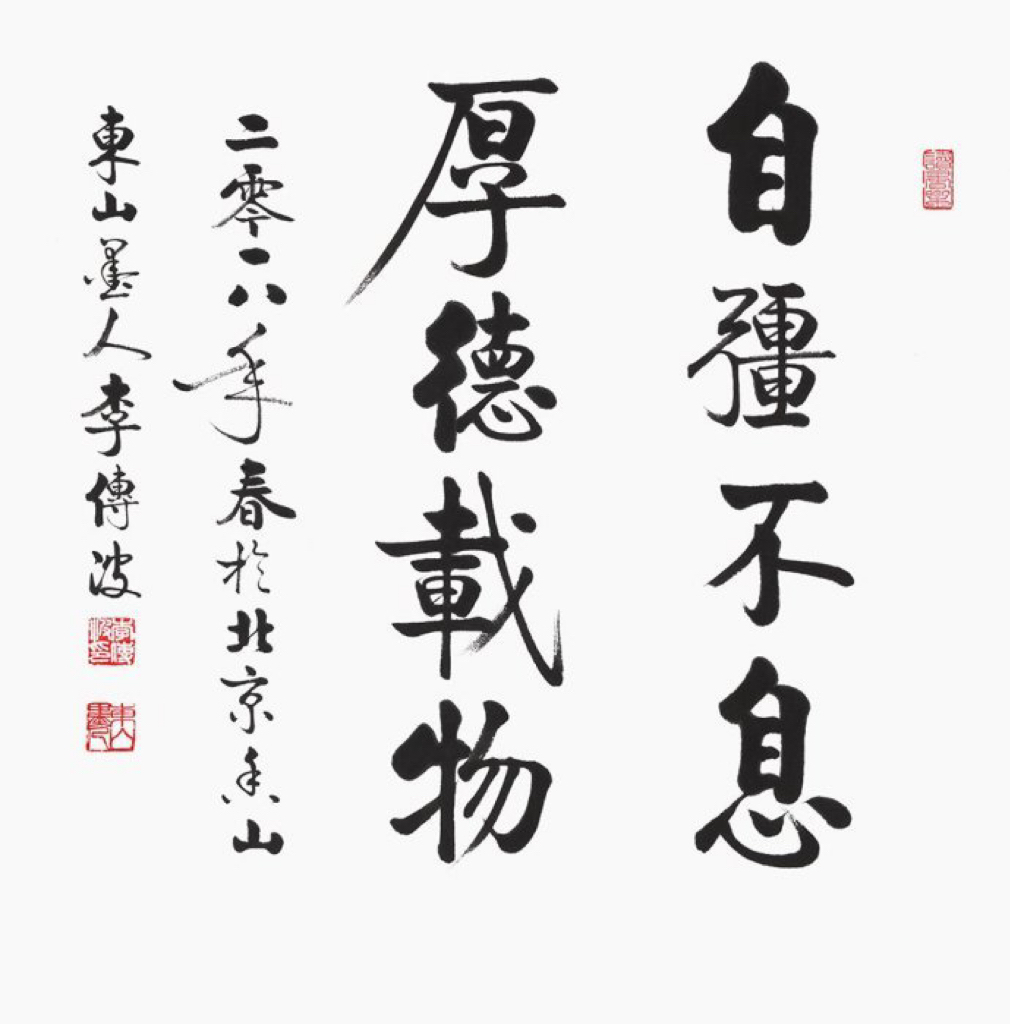 自彊不息
厚德載物
二零一八年春於北京香山
東山墨人李傳波